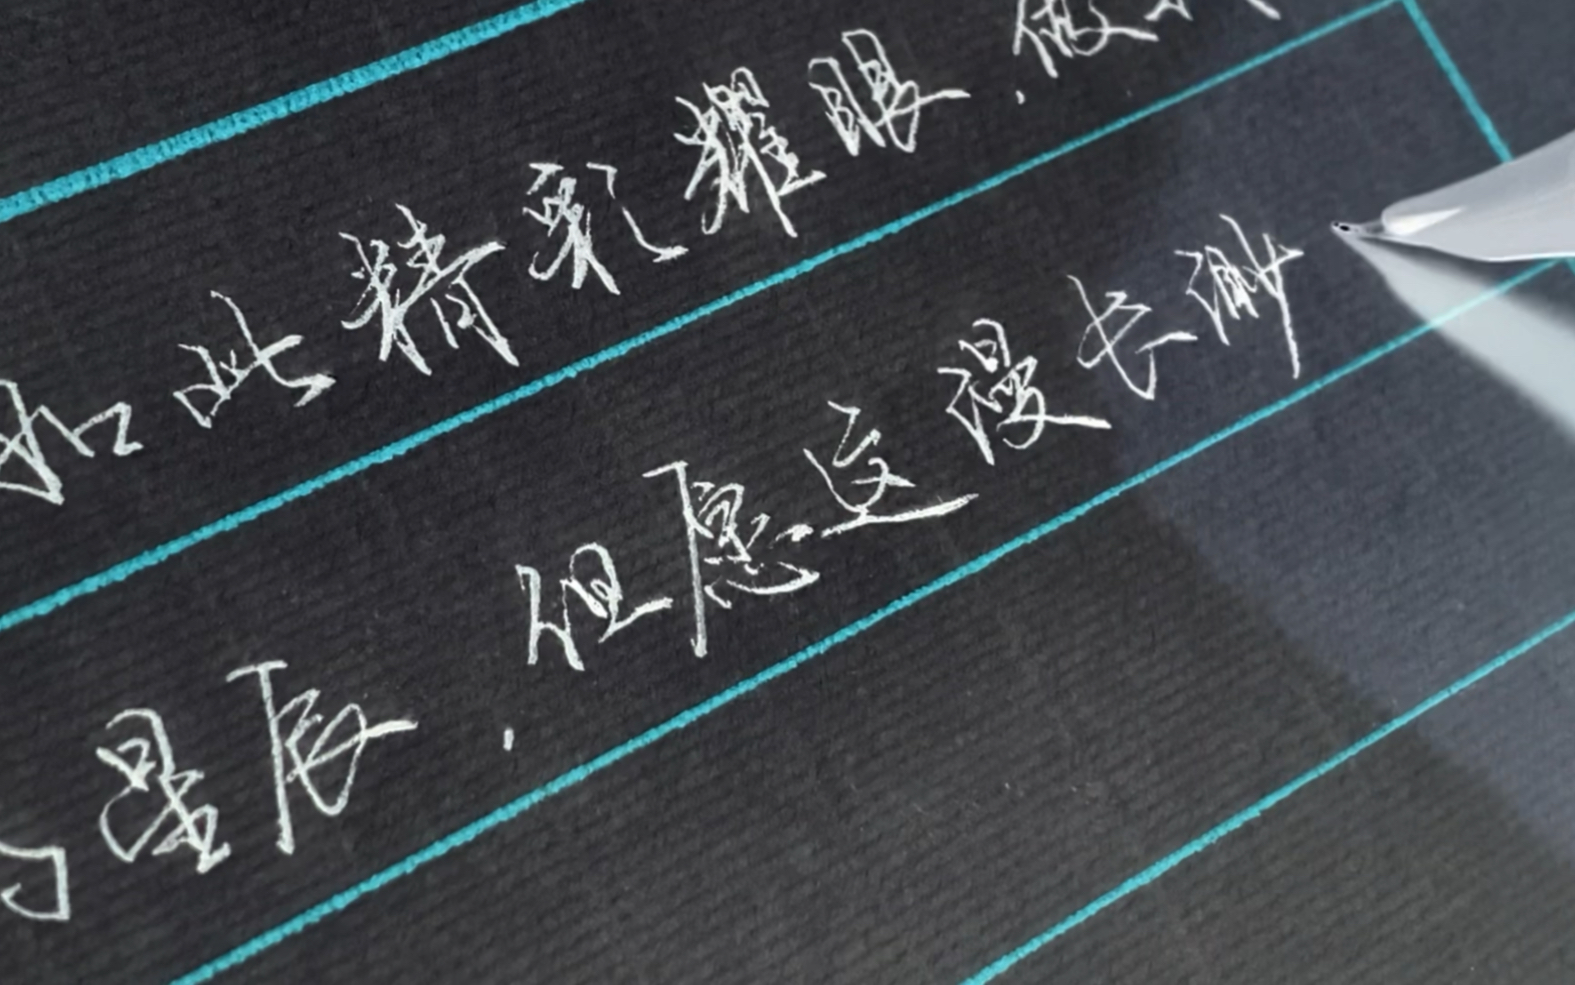 如此精彩耀眼，做
星辰，但愿这漫长渺